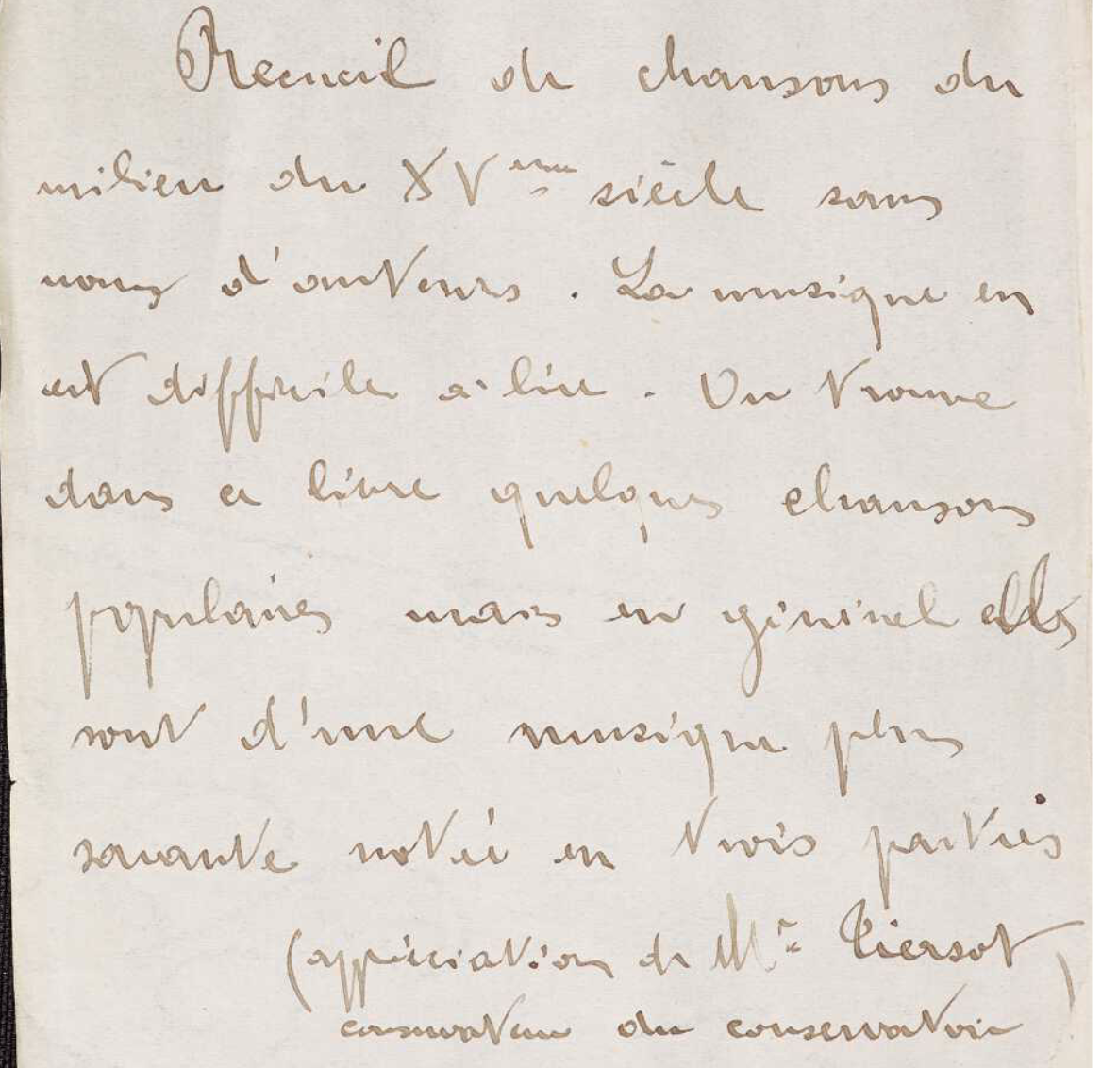 Recueil de chansons du
milieu du XVme siècle sans
noms d'auteurs. La musique en
est difficile a lire. On trouve
dans ce livre quelques chansons
populaires mais en général elles
sont d'une musique plus
savante notée en trois parties
(appréciation de Mr Tiersot)
conservateur du conservatoire